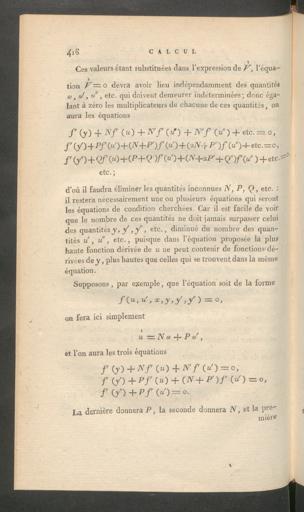 416 CALCUL
Ces valeurs étant substituées dans l'expression de V̇, l'équa-
tion V̇ = 0 devra avoir lieu indépendamment des quantités
u, u′, u″, etc. qui doivent demeurer indéterminées; donc éga-
lant à zéro les multiplicateurs de chacune de ces quantités, on
aura les équations
f′(y) + Nf′(u) + N′f′(u′) + N″f′(u″) + etc. = 0,
f′(y′) + Pf′(u) + (N + P′)f′(u′) + (2N′ + P″)f′(u″) + etc. = 0,
f′(y″) + Qf′(u) + (P + Q′)f′(u′) + (N + 2P′ + Q″)f′(u″) + etc. = 0,
etc.;
d'où il faudra éliminer les quantités inconnues N, P, Q, etc. :
il restera nécessairement une ou plusieurs équations qui seront
les équations de condition cherchées. Car il est facile de voir
que le nombre de ces quantités ne doit jamais surpasser celui
des quantités y, y′, y″, etc., diminué du nombre des quan-
tités u′, u″, etc., puisque dans l'équation proposée la plus
haute fonction dérivée de u ne peut contenir de fonctions dé-
rivées de y, plus hautes que celles qui se trouvent dans la même
équation.
Supposons, par exemple, que l'équation soit de la forme
f(u, u′, x, y, y′, y″) = 0,
on fera ici simplement
u̇ = Nω + Pω′,
et l'on aura les trois équations
f′(y) + Nf′(u) + N′f′(u′) = 0,
f′(y′) + Pf′(u) + (N + P′)f′(u′) = 0,
f′(y″) + Pf′(u′) = 0.
La dernière donnera P, la seconde donnera N, et la pre-
mière